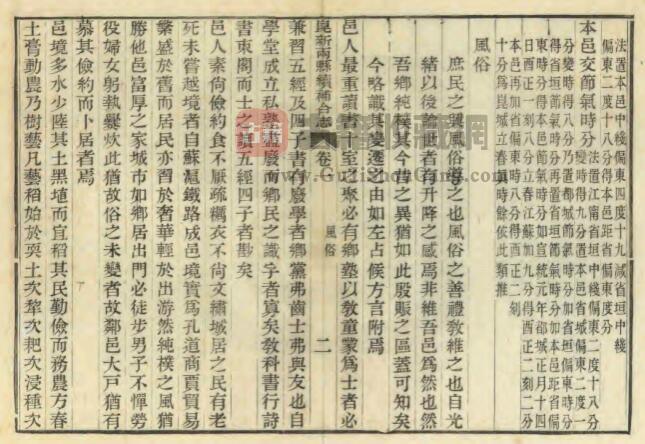 法置本邑中棧偏東四度十九減省垣中棧
偏東二度十八分得本邑距省偏東度分
本邑交節氣時分
法置江南省垣中綫偏東二度十八分
變時得九分置本邑省城偏東二度一
分變時得八分乃置都城節氣時分加省垣偏東時分
得省垣節氣時分再置省垣節氣時分加本邑距省偏
東時分得本邑節氣時分如宣統元年都城正月十四
日酉正一刻八分立春江蘇加九分得酉正二刻二分
本邑再加省偏東時八分得酉正二刻
十分為崑城立春真時餘依此類推
風俗
庶民之興風俗導之也風俗之善禮教維之也自光
緒以後論世者有升降之感焉非維吾邑為然也然
吾鄉純樸其今昔之異猶如此殷賑之區蓋可知矣
今略識其變遷之由如左占候方言附焉
邑人最重讀書十室之聚必有鄉塾以教童蒙為士者必
崑新兩縣續補合志 卷一 風俗 二
兼習五經及四子書有廢學者鄉黨弗齒士弗與友也自
學堂成立私塾盡廢而鄉民之識字者寡矣教科書行詩
書束閣而士之讀五經四子者尠矣
邑人素尚儉約食不厭疏糲衣不尚文繡城居之民有老
死未嘗越境者自蘇滬鐵路成邑境實為孔道商賈貿易
繁盛於舊而居民亦習於奢華輕於出游然純樸之風猶
勝他邑富厚之家城市如鄉居出門必徒步男子不憚勞
役婦女躬執爨炊此猶故俗之未變者故鄰邑大戶猶有
慕其儉約而卜居者焉
邑境多水少陸其土黑埴而宜稻其民勤儉而務農方春
土膏動農乃樹藝凡藝稻始於耎土次犂次耙次浸種次